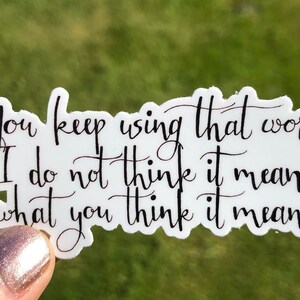 You keep using that wor
I do not think it mean
what you think it mean